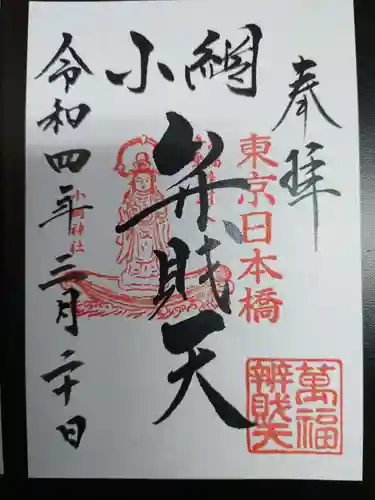 奉拝
東京日本橋
小網
弁財天
萬福
辨財天
小網神社
令和四年三月二十日